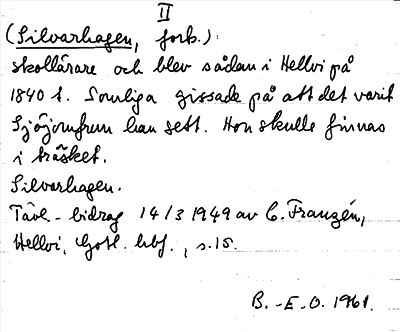 II
(Silvarhagen, forts.)
skollärare och blev sådan i Hellvi på
1840 t. Somliga gissade på att det varit
Sjöjomfrun han sett. Hon skulle finnas
i träsket.
Silvarhagen.
Tävl.-bidrag 14/3 1949 av C. Franzén,
Hellvi, Gotl. hbf., s.15.
B.-E.O. 1961.